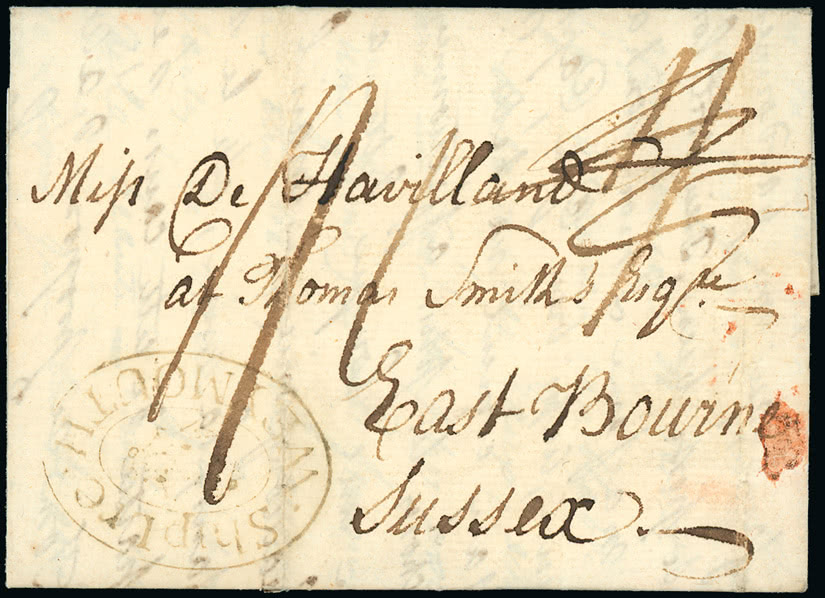 Miſs De Havilland
at Thomas Smith's Esqre.
East Bourne
Sussex.
SHIP Lr
WEYMOUTH